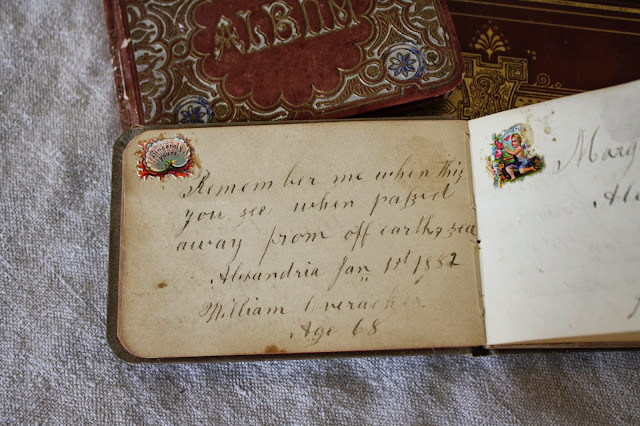 ALBUM
Sincerely
Yours
Remember me when this
you see when passed
away from off earth & sea
Alexandria Jan 1st 1882
William Overacker
Age 68
Marg
Ale